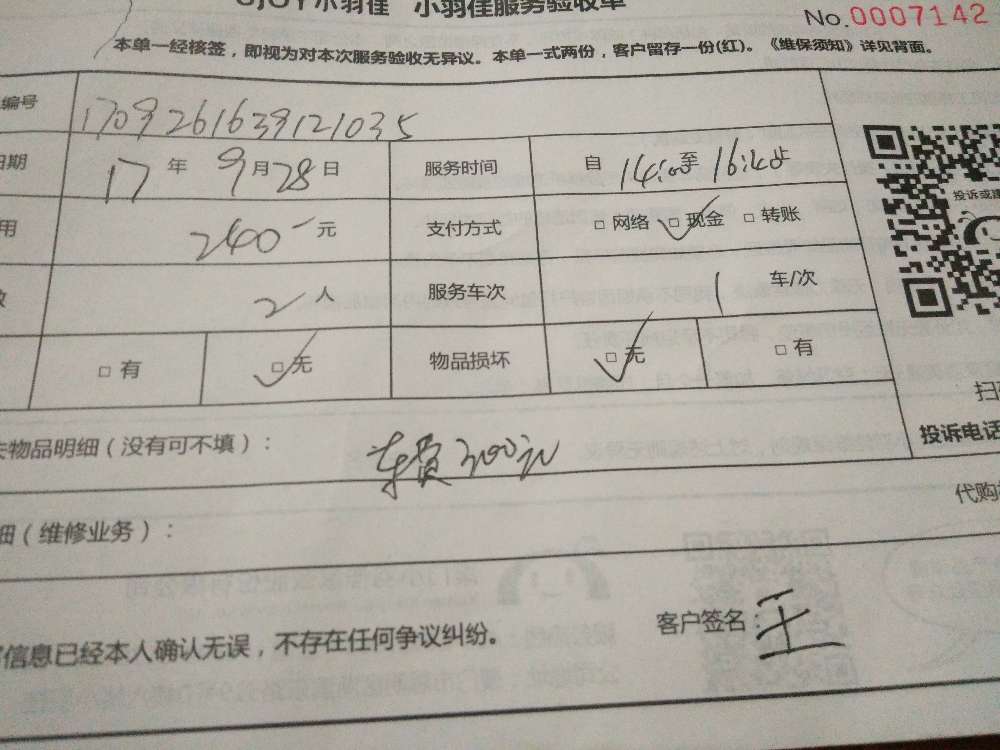 小羽佳 小羽佳服务验收单
No.0007142
本单一经核签，即视为对本次服务验收无异议。本单一式两份，客户留存一份(红)。《维保须知》详见背面。
编号 1709261639121035
日期 17 年 9 月 28 日 服务时间 自 14:00 至 16:40 止
用 2400 元 支付方式 □ 网络 □ 现金 □ 转账
投诉或建
数 2 人 服务车次 1 车/次
□ 有 □ 无 物品损坏 □ 无 □ 有
扫
失物品明细（没有可不填）： 车费300元
投诉电话
代购
细（维修业务）：
信息已经本人确认无误，不存在任何争议纠纷。 客户签名：王